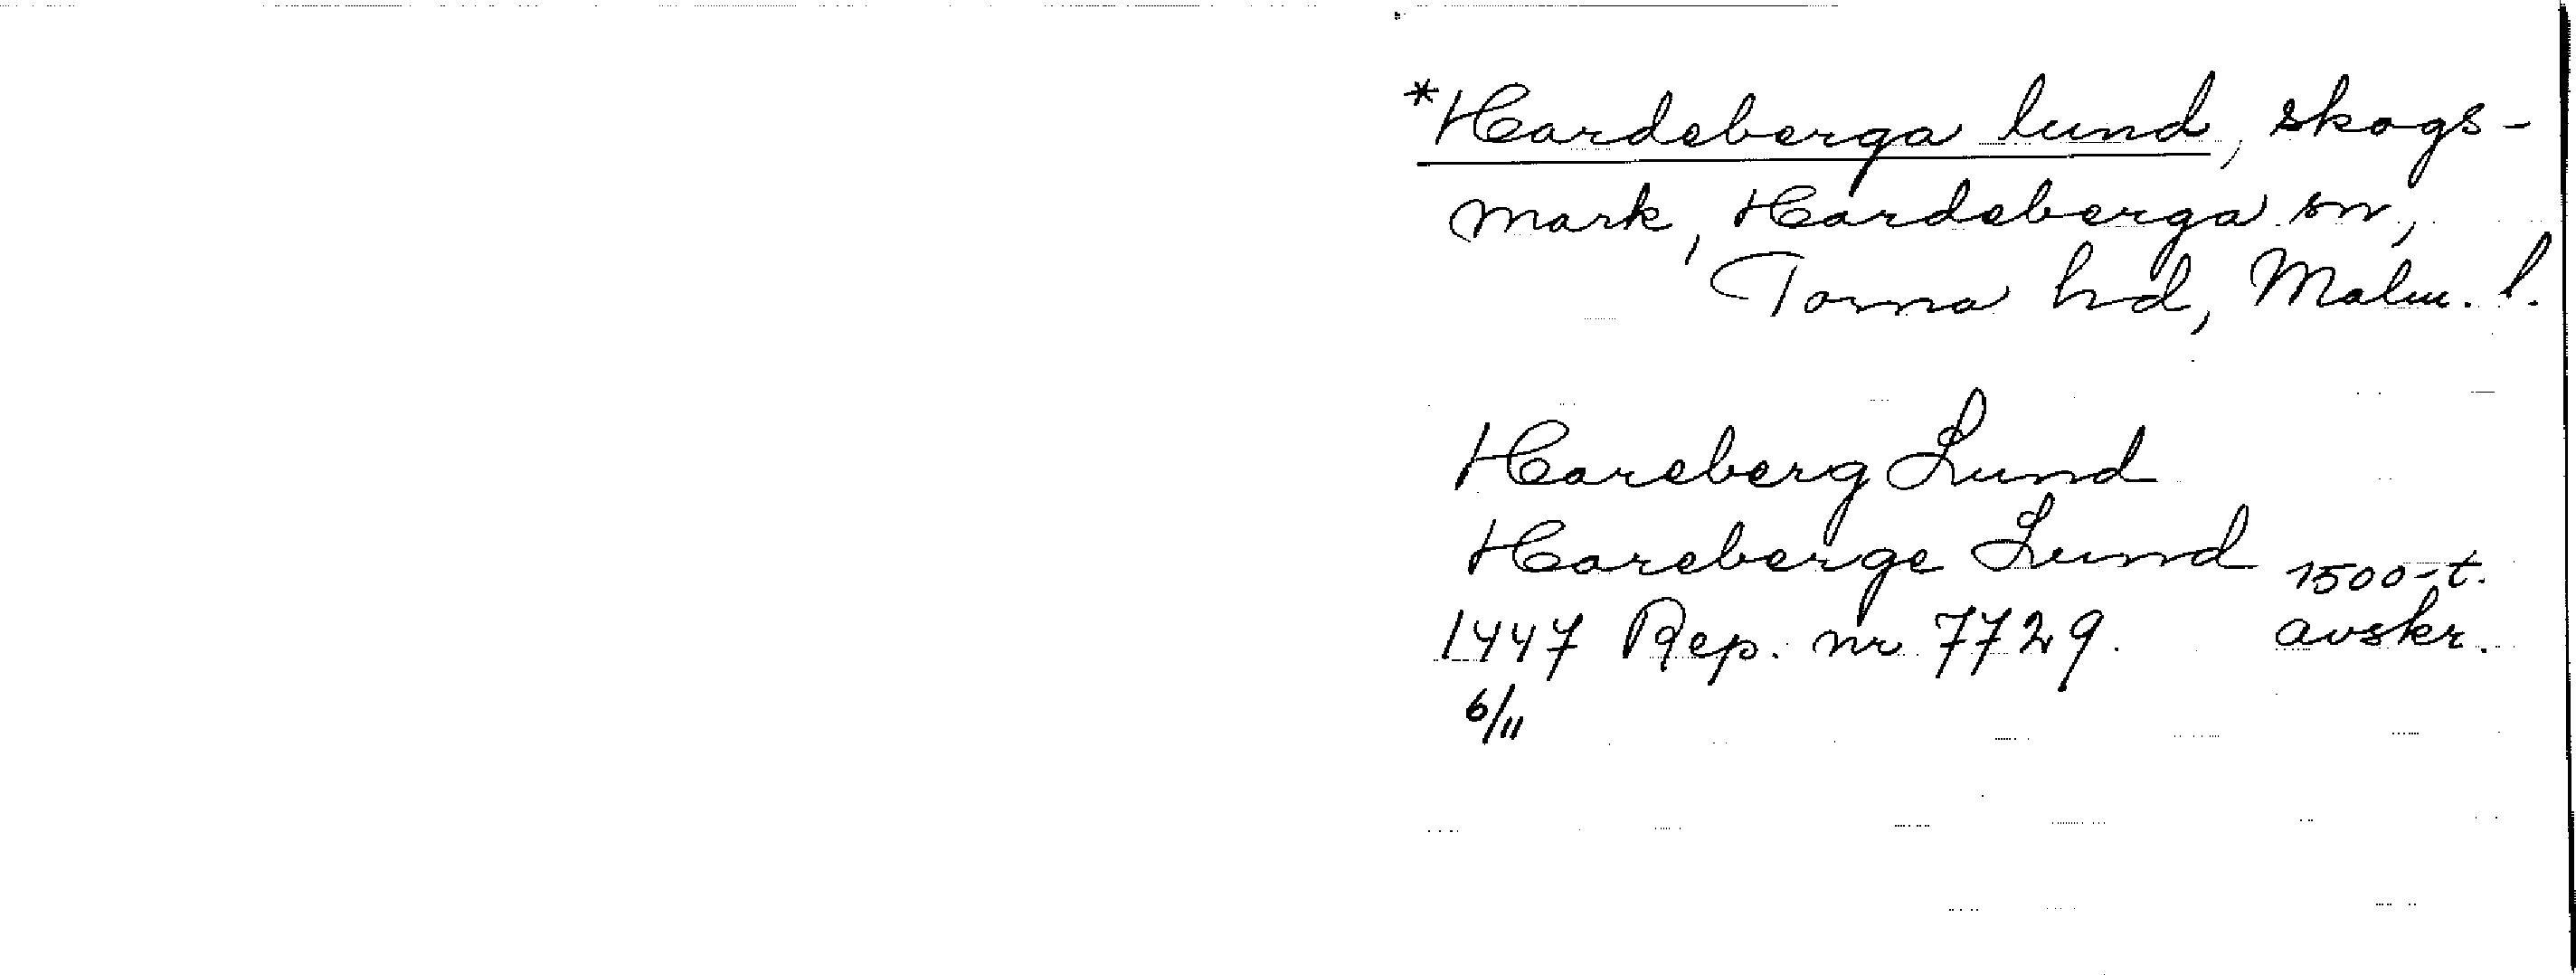 *Hardeberga lund, skogs-
mark, Hardeberga sn,
Torna hd, Malm. l.
Hareberg Lund
Hareberge Lund 1500-t.
1447 Rep. nr 7729. avskr.
6/11